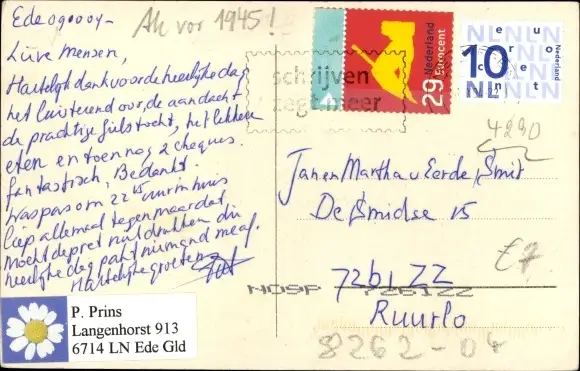 Ede 090004-
Ak vor 1945!
Lieve Mensen,
Hartelijk dank voor de heerlijke dag
het luisterend oor, de aandacht
de prachtige fietstocht, het lekkere
eten en toen nog 2 cheques.
fantastisch, Bedankt.
Was pas om 22 15 uur in huis
liep allemaal tegen maar dat
mocht de pret niet drukken die
heerlijke dag pakt niemand me af.
Hartelijke groeten
P. Prins
Langenhorst 913
6714 LN Ede Gld
schrijven
zegt meer
Nederland
29 Eurocent
NLNLNL
euro
cent
10
NL
Nederland
4290
Jan en Martha v Eerde, Smit
De Smidse 15
€7
7261 ZZ
NDSP 7261ZZ
Ruurlo
8262-04